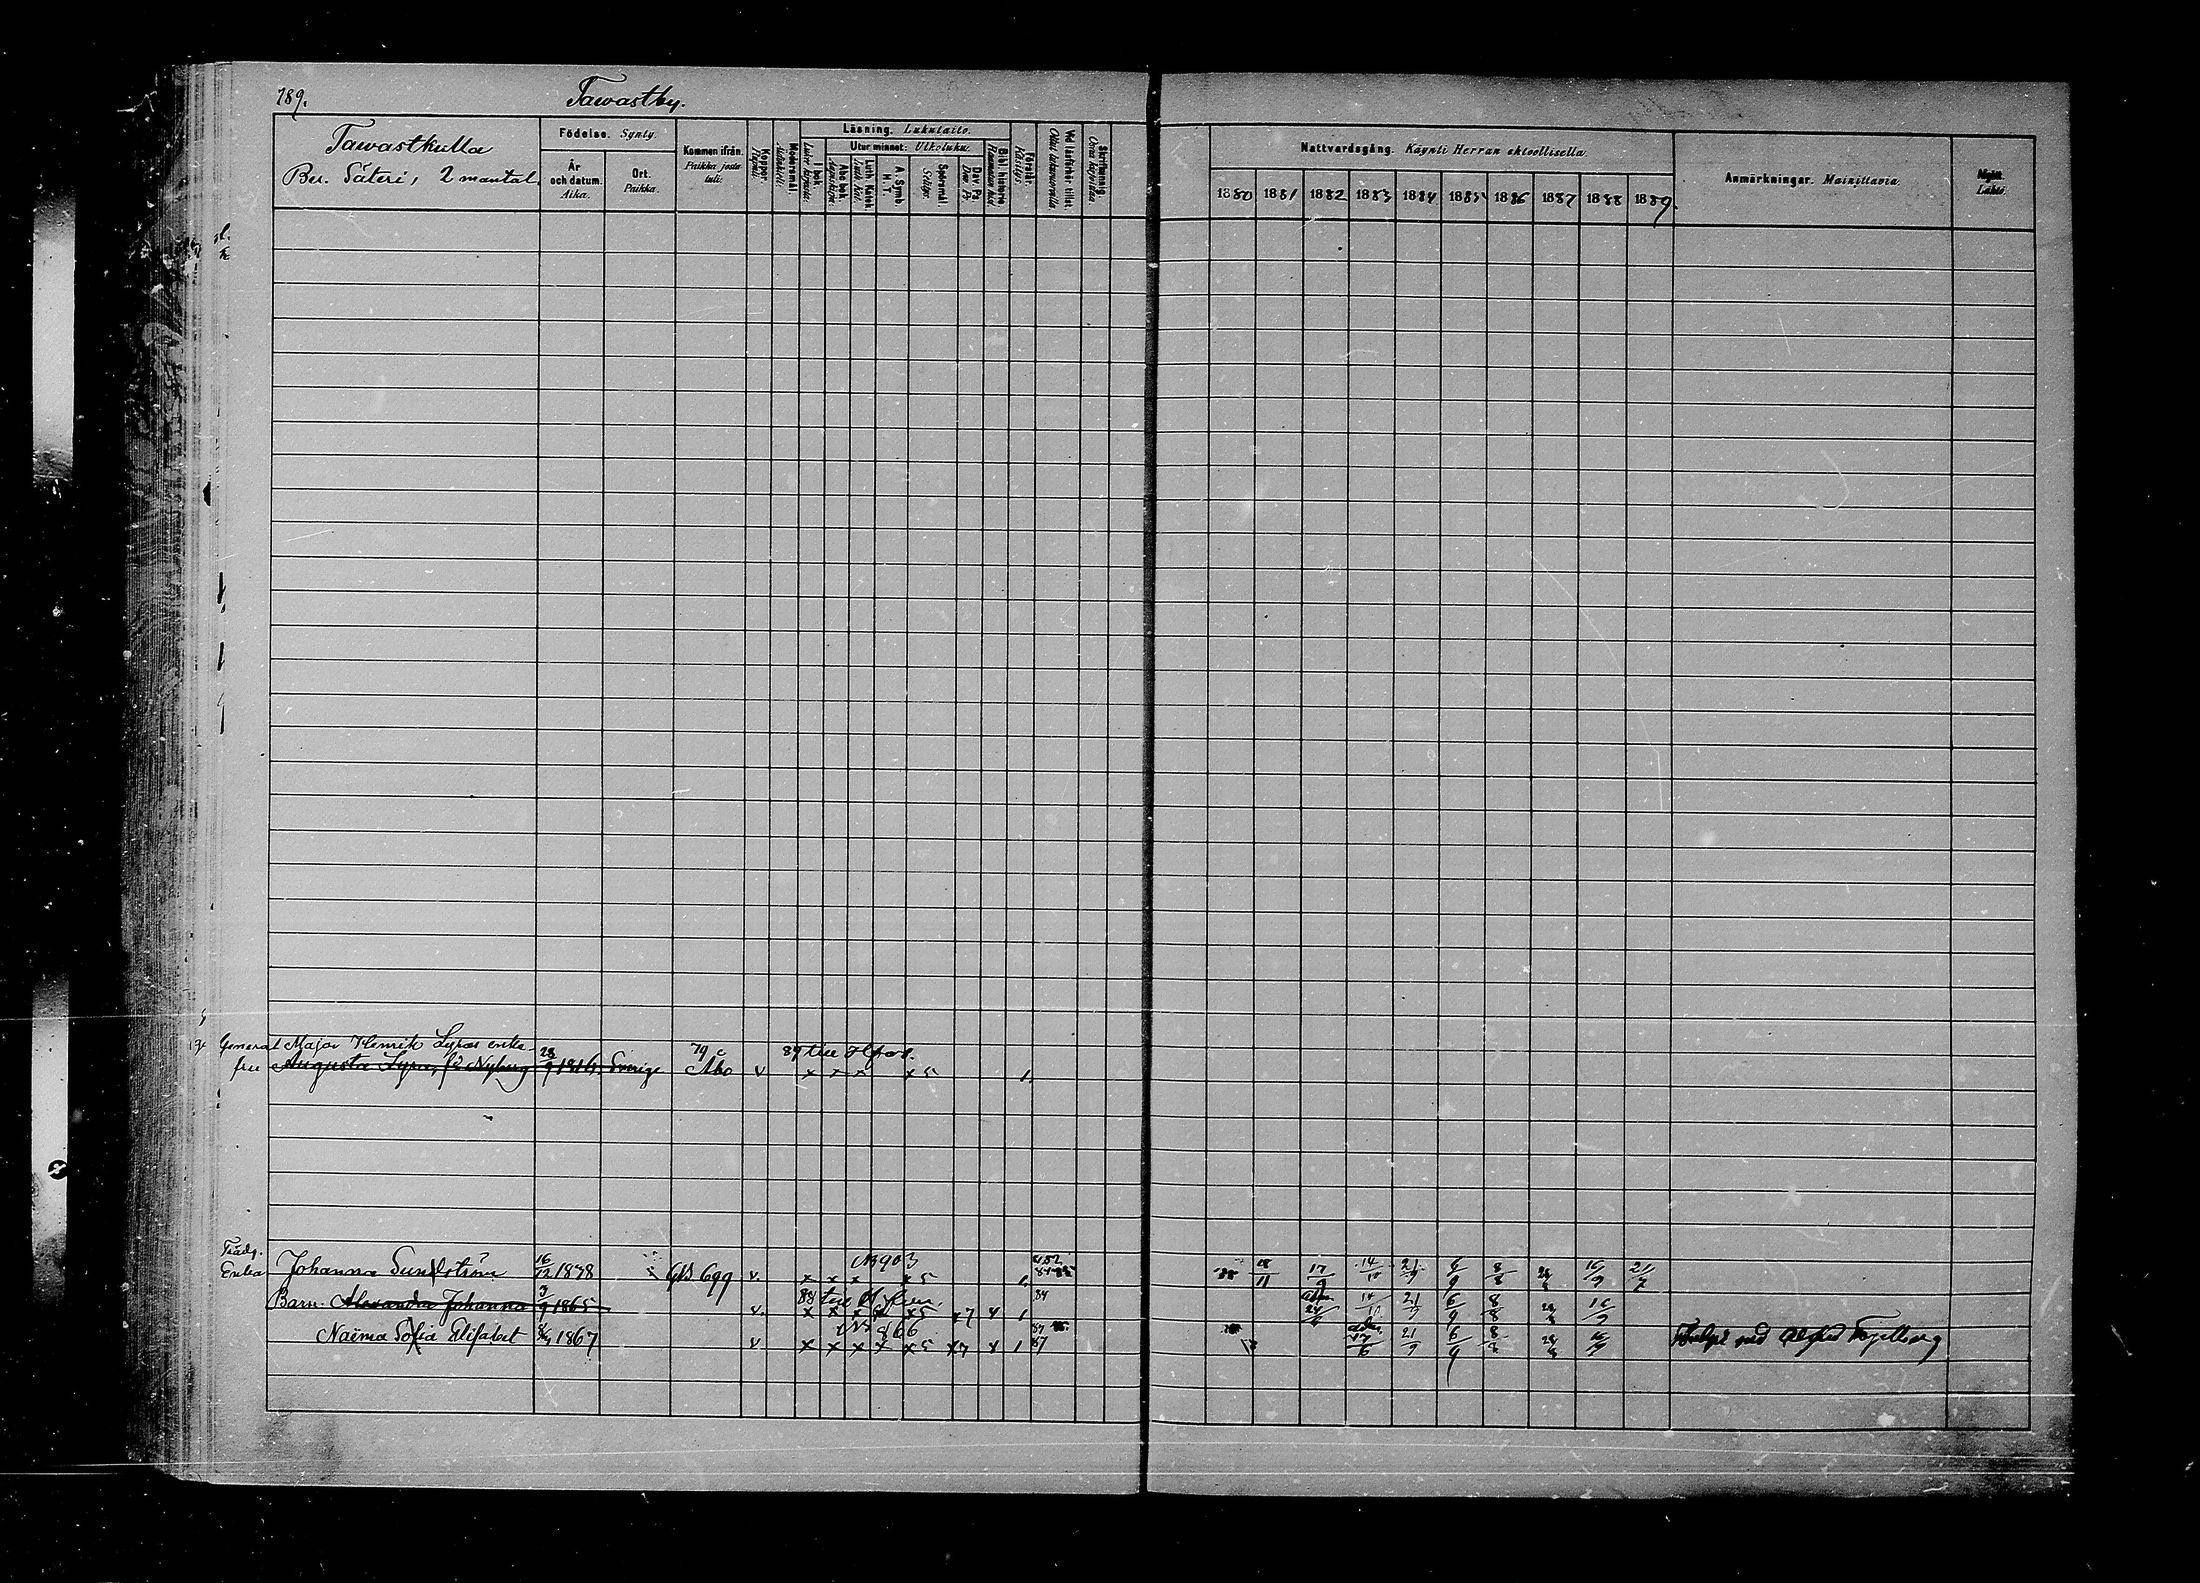 789.
Tawastby.
Tawastkulla
Ber. Säteri, 2 mantal.
Födelse. Synty.
År och datum. Aika.
Ort. Paikka.
Kommen ifrån. Paikka josta tuli.
Koppor. Rupuli.
Modersmål. Äidinkieli.
Läsning. Lukutaito.
I bok. Luku kirjasta.
Utur minnet: Ulkoluku.
Abc bok. Aapiskirja
Luth. Katek. Luth. Kat.
A. Symb. H. T.
Spörsmål. Selitys.
Dav. Ps. Dav. Ps.
Bibl. historia. Raamatun hist.
Förstår. Käsitys.
Vid läsförhör tillst. Ollut lukuluvuilla.
Skriftlunnig. Osaa kirjoittaa
Nattvardsgång. Käynti Herran ehtoollisella.
1880 1881 1882 1883 1884 1885 1886 1887 1888 1889.
Anmärkningar. Mainittavia.
Flytt. Lähtö.
General Major Henrik Lyras enka
fru Augusta Lyra, f. Nyberg 28/9 1816. Sverige 79 Åbo v 89 till Hfors. x x x x 5 1.
Trädg. Enka Johanna Sundström 16/12 1838 GB 699 v. N 903 x x x x 5 1. 18/11 17/9 14/10 21/9 6/9 8/8 28/8 16/9 21/7
Barn. Alexandra Johanna 3/9 1865 v. 84 x x x x x5 x7 4 1 84 24/6 14/10 21/9 6/9 8/8 28/8 16/9
Naëma Sofia Elisabet 1867 v N 866 x x x x x5 x7 4 1 87 17/6 21/9 6/9 8/8 28/8 16/9 med Alfred Fjellberg